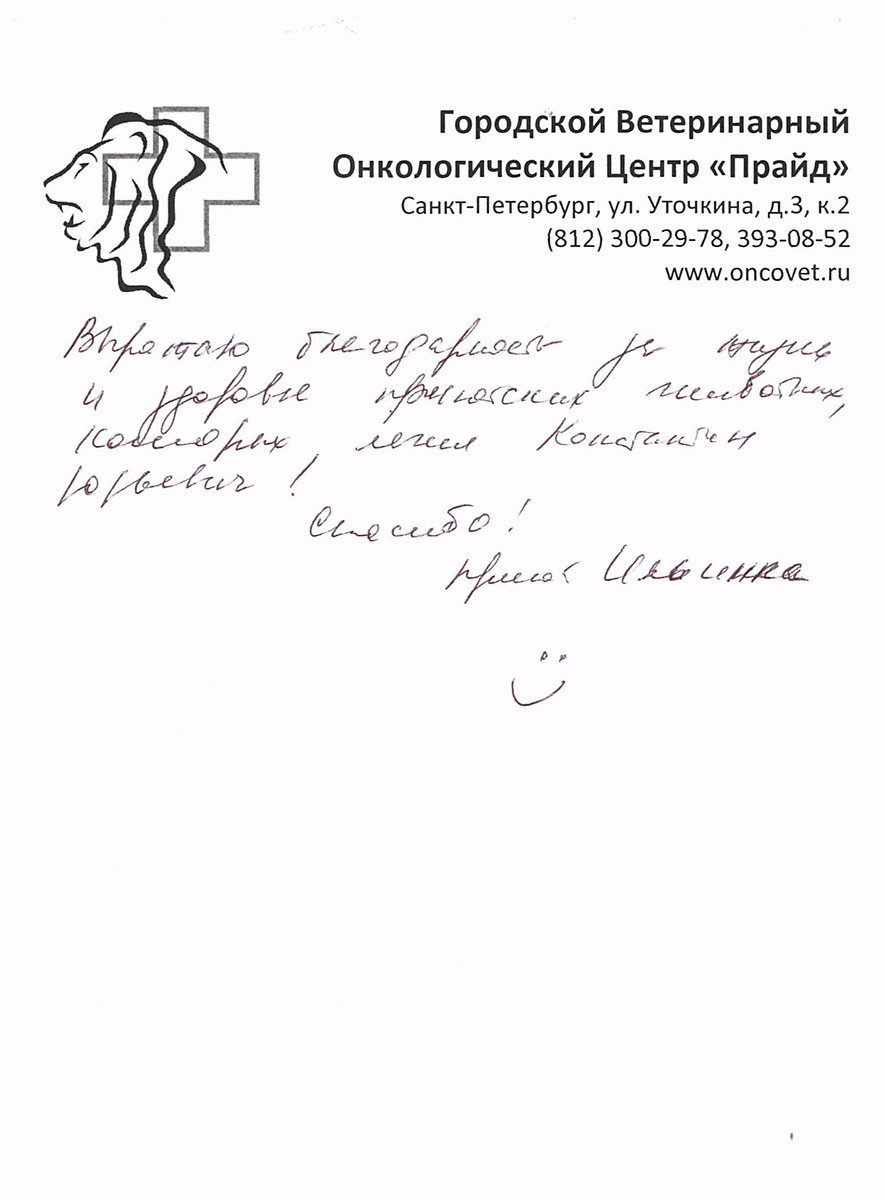 Городской Ветеринарный
Онкологический Центр «Прайд»
Санкт-Петербург, ул. Уточкина, д.3, к.2
(812) 300-29-78, 393-08-52
www.oncovet.ru
Выражаю благодарность за жизнь
и здоровье приютских животных,
которых лечил Константин
Юрьевич!
Спасибо!
приют Ильинка